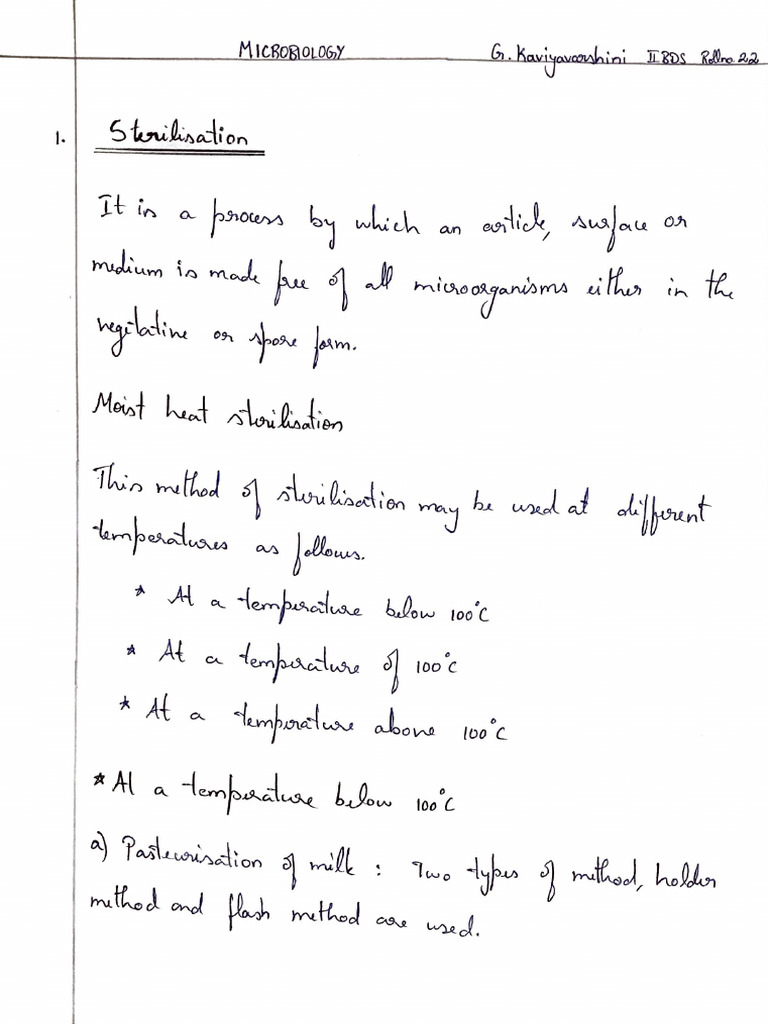 MICROBIOLOGY G. Kaviyavarshini II BDS Roll no. 22
1. Sterilisation
It is a process by which an article, surface or
medium is made free of all microorganisms either in the
vegitative or spore form.
Moist heat sterilisation
This method of sterilisation may be used at different
temperatures as follows.
* At a temperature below 100°C
* At a temperature of 100°C
* At a temperature above 100°C
* At a temperature below 100°C
a) Pasteurisation of milk : Two types of method, holder
method and flash method are used.